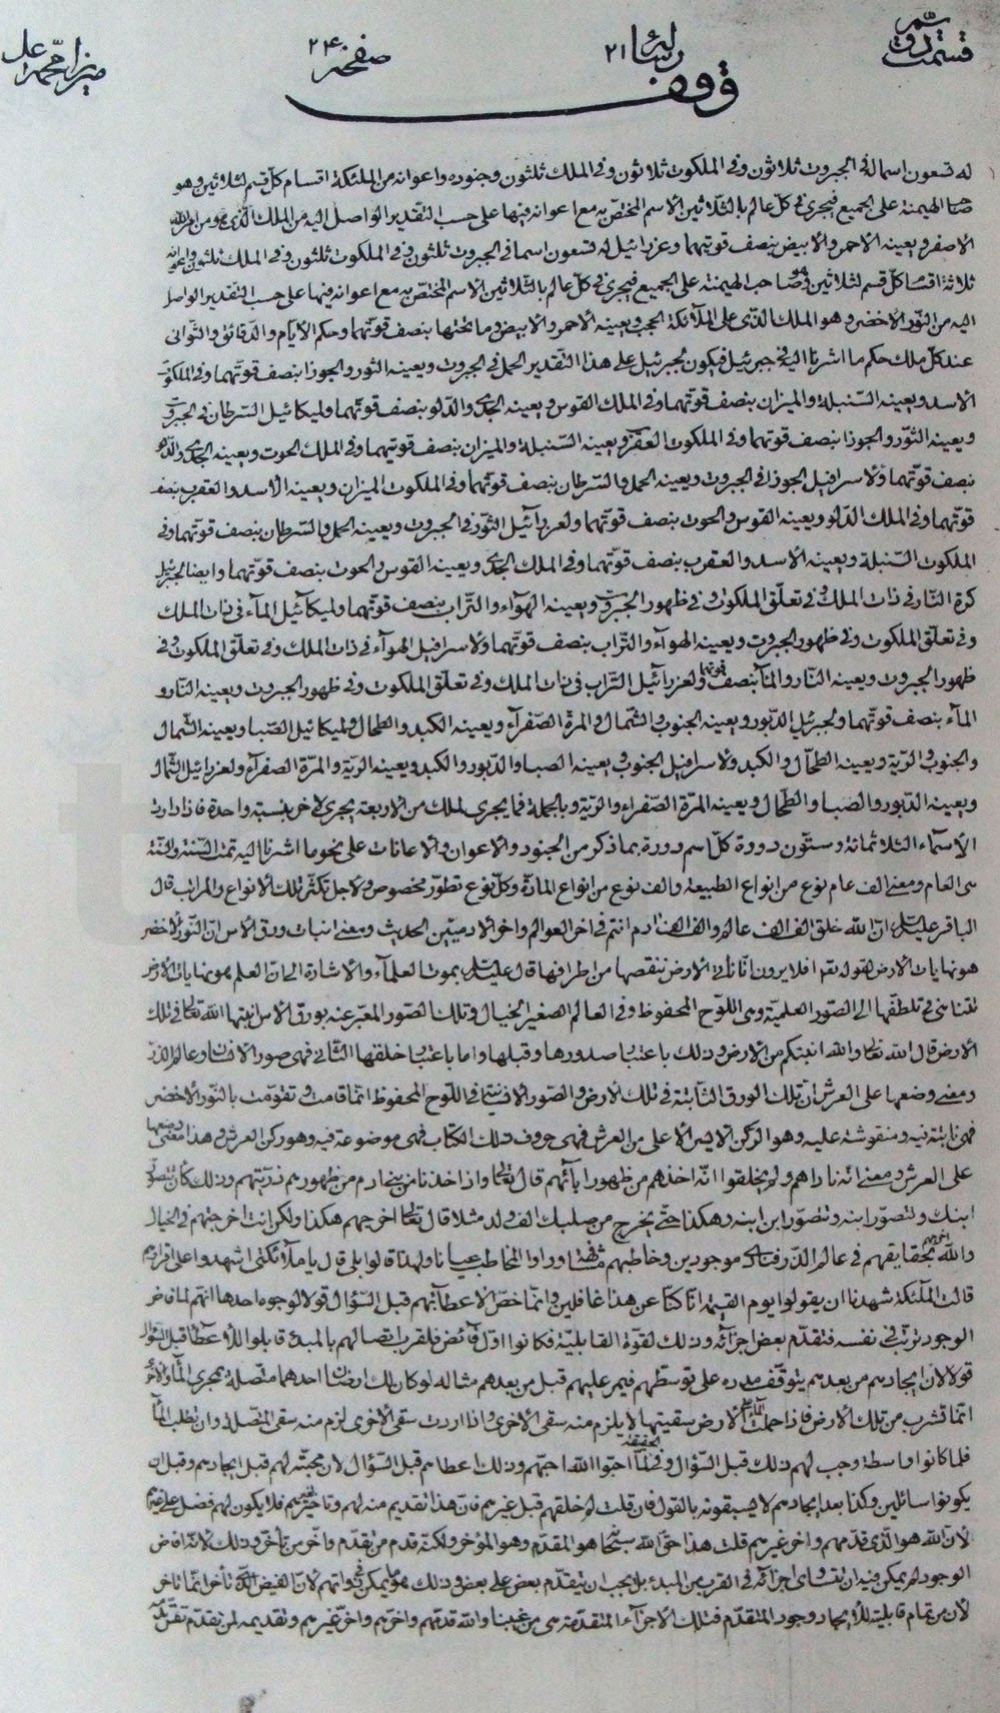 قسمت دویم رساله ۲۱ صفحه ۲۴ میرزا محمد علی
وقف
له تسعون اسما له فى الجبروت ثلاثون وفى الملكوت ثلاثون وفى الملك ثلثون وجنوده واعوانه من الملئكة اقسام كل قسم لثلاثين وهو
الهيمنة على الجميع فيجرى فى كل عالم بالثلاثين الاسم المختص به مع اعوانه فيها على حسب التقدير الواصل اليه من الملك الذى هو من
الاصفر ويعينه الاحمر والابيض بنصف قوتيهما وعزرائيل له تسعون اسما فى الجبروت ثلثون وفى الملكوت ثلثون وفى الملك ثلثون واعوانه
ثلاثة اقسام كل قسم لثلاثين وهو صاحب الهيمنة على الجميع فيجرى فى كل عالم بالثلاثين الاسم المختص به مع اعوانه فيها على حسب التقدير الواصل
اليه من النور الاخضر وهو الملك الذى على ملائكة الحجب ويعينه الاحمر والابيض وما تحتها بنصف قوتهما وحكم الايام والدقائق والثوانى
عند كل ملك حكم ما اشرنا اليه فى جبرئيل فيكون لجبرئيل على هذا التقدير الحمل فى الجبروت ويعينه الثور والجوزا بنصف قوتهما وفى الملكوت
الاسد ويعينه السنبلة والميزان بنصف قوتهما وفى الملك القوس ويعينه الجدى والدلو بنصف قوتهما ولميكائيل السرطان فى الجبروت
ويعينه الثور والجوزا بنصف قوتهما وفى الملكوت العقرب ويعينه السنبلة والميزان بنصف قوتيهما وفى الملك الحوت ويعينه الجدى والدلو
بنصف قوتهما ولاسرافيل الجوزا فى الجبروت ويعينه الحمل والسرطان بنصف قوتهما وفى الملكوت الميزان ويعينه الاسد والعقرب بنصف
قوتهما وفى الملك الدلو ويعينه القوس والحوت بنصف قوتهما ولعزرائيل الثور فى الجبروت ويعينه الحمل والسرطان بنصف قوتهما وفى
الملكوت السنبلة ويعينه الاسد والعقرب بنصف قوتهما وفى الملك الجدى ويعينه القوس والحوت بنصف قوتهما وايضا لجبرئيل
كرة النار فى ذات الملك وفى تعلق الملكوت وفى ظهور الجبروت ويعينه الهوآء والتراب بنصف قوتهما ولميكآئيل المآء فى ذات الملك
وفى تعلق الملكوت وفى ظهور الجبروت ويعينه الهوآء والتراب بنصف قوتهما ولاسرافيل الهوآء فى ذات الملك وفى تعلق الملكوت وفى
ظهور الجبروت ويعينه النار والمآء بنصف قوتهما ولعزرآئيل التراب فى ذات الملك وفى تعلق الملكوت وفى ظهور الجبروت ويعينه النار و
المآء بنصف قوتهما ولجبرئيل الدبور ويعينه الجنوب والشمال والمرة الصفرآء ويعينه الكبد والطحال ولميكائيل الصبا ويعينه الشمال
والجنوب والرية ويعينه الطحال والكبد ولاسرافيل الجنوب ويعينه الصبا والدبور والكبد ويعينه الرية والمرة الصفرآء ولعزرائيل الشمال
ويعينه الدبور والصبا والطحال ويعينه المرة الصفراء والرية وبالجملة فما يجرى لملك من الاربعة يجرى لاخر بنسبة واحدة فاذا دارت
الأسمآء الثلاثمائة وستون دورة كل اسم دورة بما ذكر من الجنود والاعوان والاعانات على نحو ما اشرنا اليه تمت السنة والسنة
هى العام ومعنى الف عام نوع من انواع الطبيعة والف نوع من انواع المادة وكل نوع تطور مخصوص ولاجل تكثر تلك الانواع والمراتب قال
الباقر عليه السلام ان الله خلق الف الف عالم والف الف ادم انتم فى اخر العوالم واخر الادميين الحديث ومعنى انبات ورق الاس ان النور الاخضر
هو نهايات الارض لقوله تعالى افلا يرون انا ناتى الارض ننقصها من اطرافها قال عليه السلام بموت العلمآء والاشارة الى ان العلم هو نهايات الارض
لتناهى فى تلطفها الى الصور العلمية وهى اللوح المحفوظ وفى العالم الصغير الخيال وتلك الصور المعبر عنه بورق الاس انبتها الله تعالى فى تلك
الارض قال الله تعالى والله انبتكم من الارض وذلك باعتبار صدورها وقبلها واما باعتبار خلقها الثانى فهى صور الانسان وعالم الذر
ومعنى وضعها على العرش ان تلك الورق الثابتة فى تلك الارض والصور الانسانية فى اللوح المحفوظ انما قامت وتقومت بالنور الاخضر
فهى نابتة فيه ومنقوشة عليه وهو الركن الايسر الاعلى من العرش فهى حروف ذلك الكتاب فهى موضوعة فيه وهو ركن العرش وهذا معنى وضعها
على العرش ومعنى انه ناداهم ولم يخلقوا انه اخذهم من ظهور ابآئهم قال تعالى واذ اخذنا من بنى ادم من ظهورهم ذريتهم وذلك كأن تتصور
ابنك وتتصور ابنه وتتصور ابن ابنه وهكذا حتى يخرج من صلبك الف ولد مثلا قال تعالى اخرجهم هكذا ولكن انت اخرجتهم فى الخيال
والله اخرجهم بحقايقهم فى عالم الذر فناداك موجودين وخاطبهم مشافهة وراوا المخاطب عيانا ولهذا قالوا بلى قال يا ملائكتى اشهدوا على اقرارهم
قالت الملئكة شهدنا ان يقولوا يوم القيمة انا كنا عن هذا غافلين وانما خص الاعطآئهم قبل السؤال قولا لوجوه احدها انهم لما فاض
الوجود ترتب فى نفسه فتقدم بعض اجزآئه وذلك لقوة القابلية فكانوا اول فآئض فلقرب اتصالهم بالمبدء قابلوا للاعطآء قبل السؤال
قولا لان ايجاد من بعدهم يتوقف مدده على توسطهم فيمر عليهم قبل من بعدهم مثاله لو كان لك ارضان احدهما متصلة بمجرى المآء والاخرى
انما تشرب من تلك الارض فاذا حملت المآء على الارض سقيتها لا يلزم منه سقى الاخرى واذا اردت سقى الاخرى لزم منه سقى المتصلة وان تطلب المآء
فلما كانوا واسطة وجب لهم ذلك قبل السؤال وفى الحقيقة انما احبوا الله احبهم وذلك اعطاهم قبل السؤال لان محبته لهم قبل ايجادهم وقبل ان
يكونوا سائلين وكذا بعد ايجادهم لا يسبقونه بالقول فان قلت لم خلقهم قبل غيرهم فان هذا تقديم منه لهم وتاخير لغيرهم فلا يكون لهم فضل على غيرهم
لان الله هو الذى قدمهم واخر غيرهم قلت هذا حق الله سبحانه هو المقدم وهو المؤخر ولكنه قدم من تقدم واخر من تأخر وذلك لانه افاض
الوجود لم يكن فيه ان تتساوى اجزآئه فى القرب من المبدء بل يجب ان يتقدم بعض على بعض وذلك هو ما يمكن فى ذواتهم لان الفيض الذى تأخر انما تاخر
لان من تمام قابليته للايجاد وجود المتقدم فتلك الاجزآء المتقدمة هى من غيبنا والله قدمهم واخرهم واخر غيرهم وتقديمه لمن تقدم